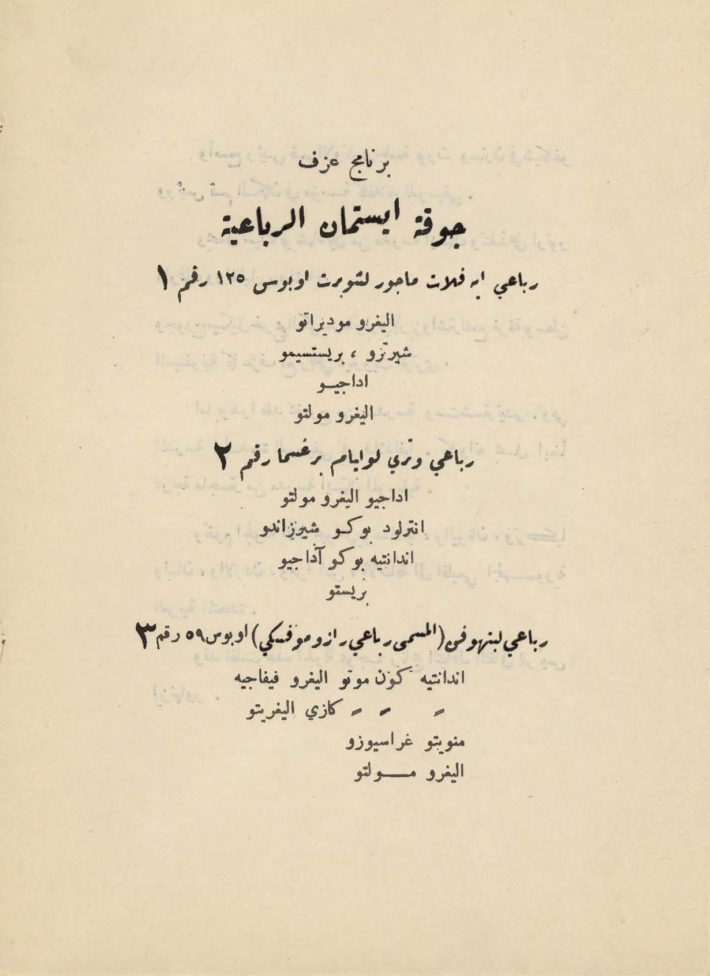 برنامج عزف
جوقة ايستمان الرباعية
رباعي ايه فلات ماجور لشوبرت اوبوس ١٢٥ رقم ١
اليغرو موديراتو
شيرتزو ، بريستسيمو
اداجيـو
اليغرو مولتو
رباعي وتري لوايام برغسما رقم ٢
اداجيو اليغرو مولتو
انترلود بوكـو شيرزاندو
اندانتيه بوكو آداجيو
بريستو
رباعي لبتهوفن (المسمى رباعي رازوموفسكي) اوبوس ٥٩ رقم ٣
اندانتيه كون موتو اليغرو فيفاجيه
〃 〃 〃 كازي اليغريتو
منويتو غراسيوزو
اليغرو مـــولتو